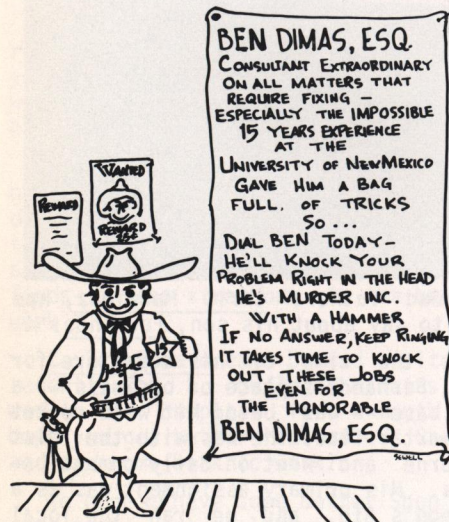 WANTED
REWARD
REWARD
BEN DIMAS, ESQ.
CONSULTANT EXTRAORDINARY
ON ALL MATTERS THAT
REQUIRE FIXING —
ESPECIALLY THE IMPOSSIBLE
15 YEARS EXPERIENCE
AT THE
UNIVERSITY OF NEW MEXICO
GAVE HIM A BAG
FULL. OF TRICKS
SO ...
DIAL BEN TODAY —
HE'LL KNOCK YOUR
PROBLEM RIGHT IN THE HEAD
HE'S MURDER INC.
WITH A HAMMER
IF NO ANSWER, KEEP RINGING
IT TAKES TIME TO KNOCK
OUT THESE JOBS
EVEN FOR
HONORABLE
BEN DIMAS, ESQ.
SEWELL